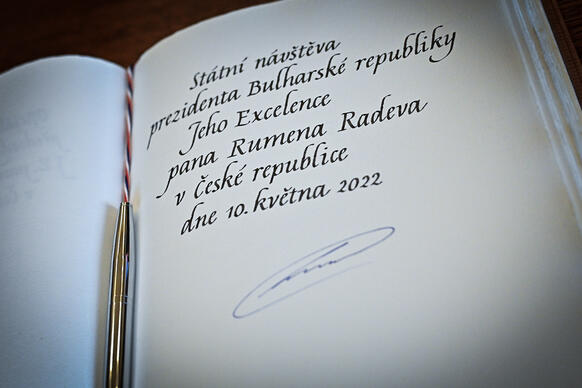 Státní návštěva
prezidenta Bulharské republiky
Jeho Excelence
pana Rumena Radeva
v České republice
dne 10. května 2022